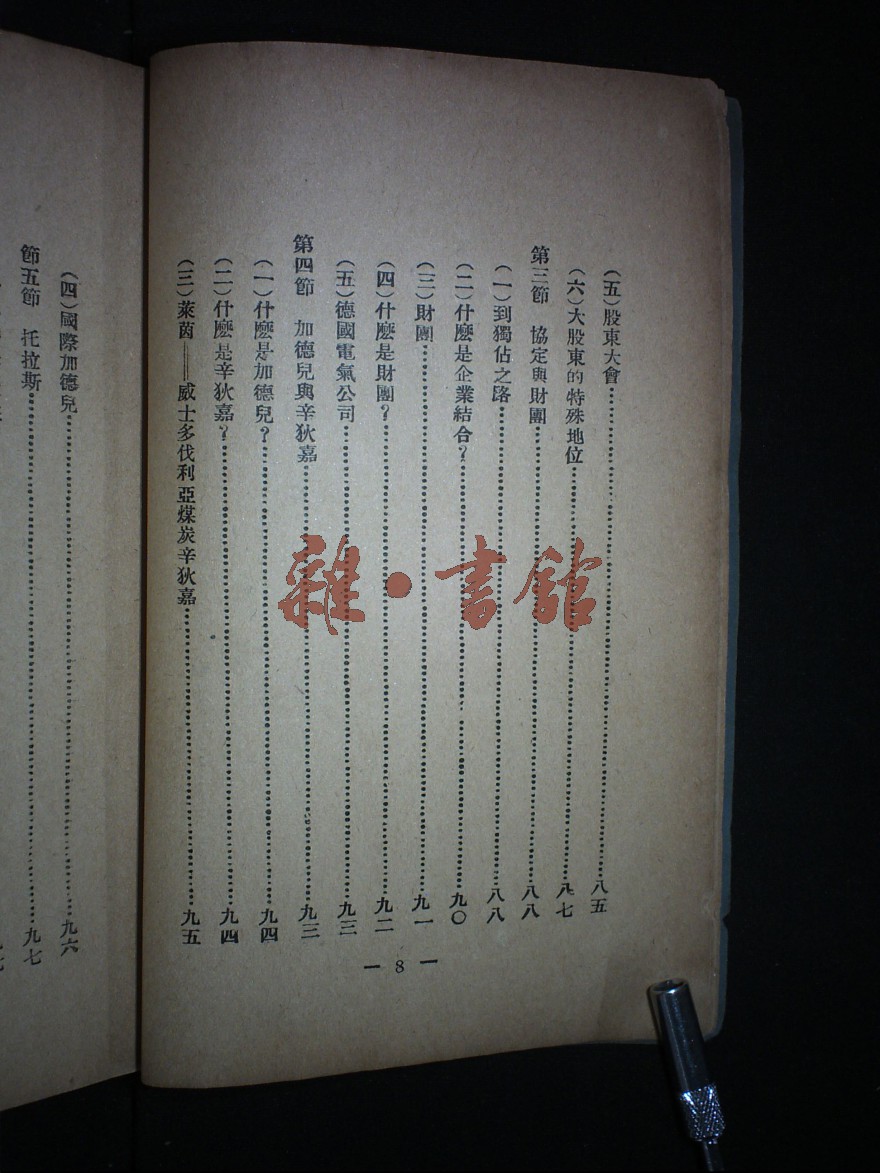 (五)股東大會……八五
(六)大股東的特殊地位……八七
第三節 協定與財團……八八
(一)到獨佔之路……八八
(二)什麽是企業結合?……九〇
(三)財團……九一
(四)什麽是財團?……九二
(五)德國電氣公司……九三
第四節 加德兒與辛狄嘉……九三
(一)什麽是加德兒?……九四
(二)什麽是辛狄嘉?……九四
(三)萊茵——威士多伐利亞煤炭辛狄嘉……九五
— 8 —
(四)國際加德兒……九六
節五節 托拉斯……九七
雜·書館